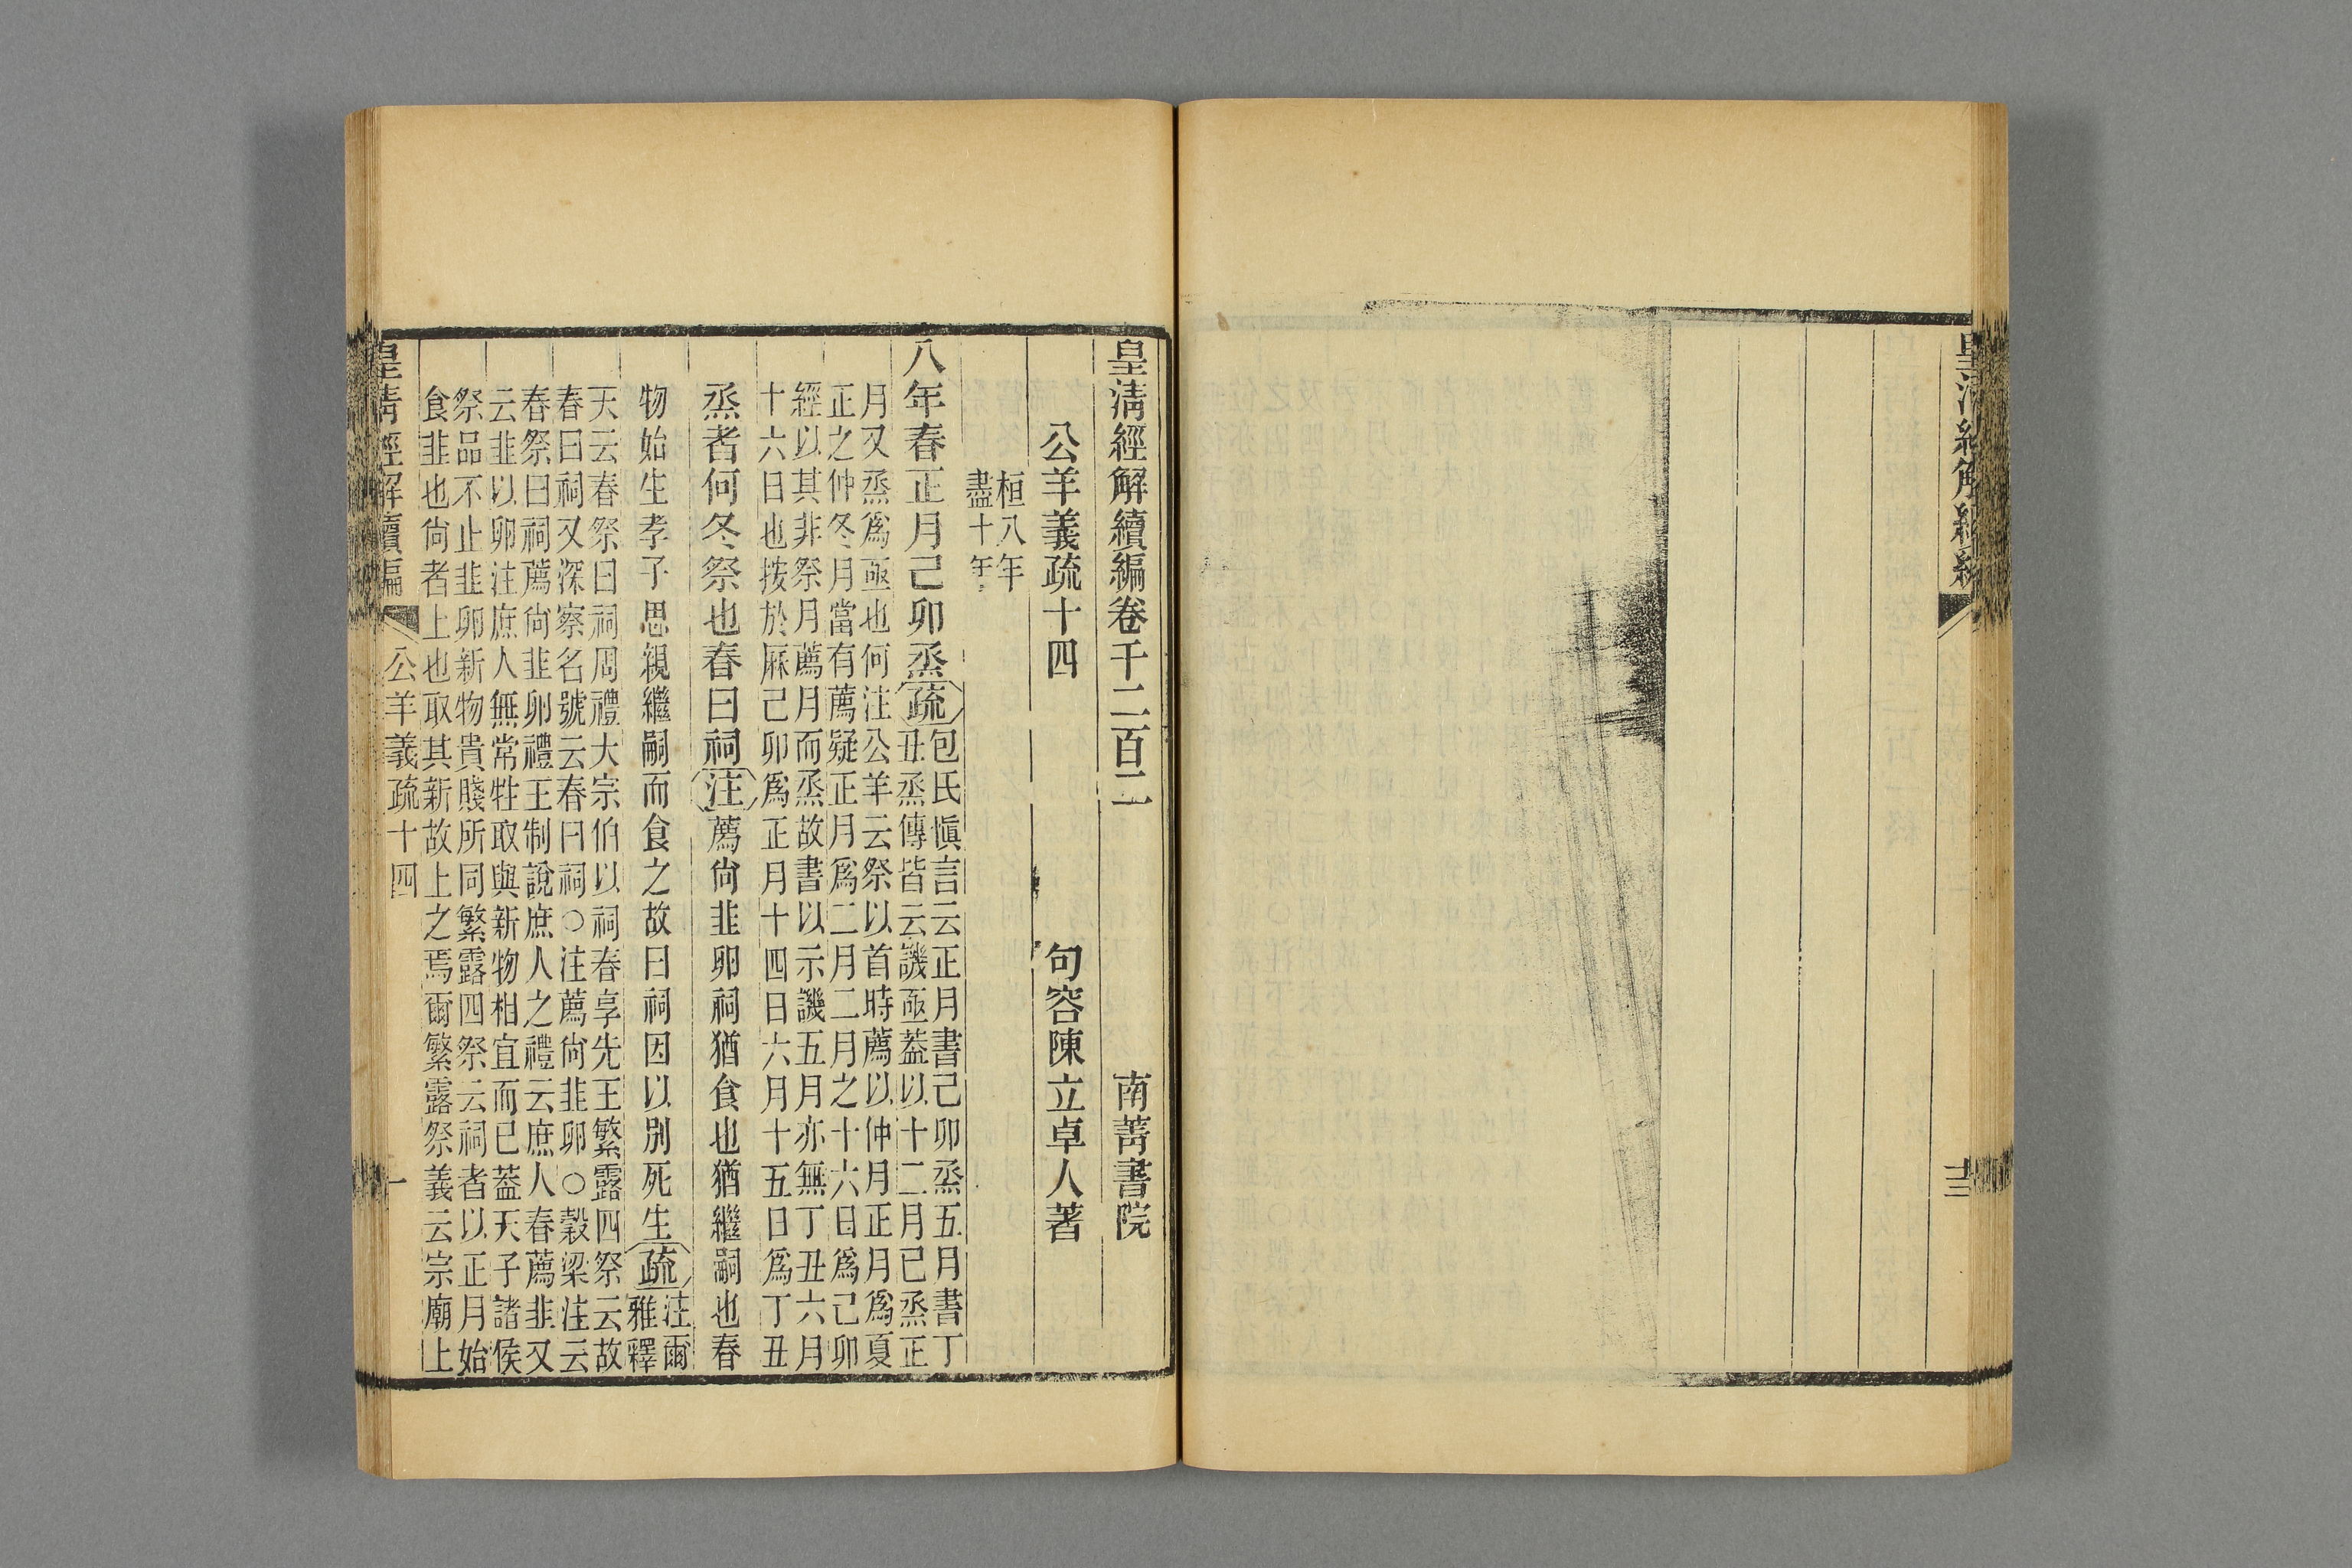 皇清經解續編
十三
皇清經解續編卷千二百二　南菁書院
公羊義疏十四　句容陳立卓人著
桓八年
盡十年
八年春正月己卯烝疏包氏愼言云正月書己卯烝五月書丁
丑烝傳皆云譏亟葢以十二月已烝正
月又烝爲亟也何注公羊云祭以首時薦以仲月正月爲夏
正之仲冬月當有薦疑正月爲二月二月之十六日爲己卯
經以其非祭月薦月而烝故書以示譏五月亦無丁丑六月
十六日也按於厤己卯爲正月十四日六月十五日爲丁丑
烝者何冬祭也春曰祠注薦尙韭卵祠猶食也猶繼嗣也春
物始生孝子思親繼嗣而食之故曰祠因以別死生疏注爾
雅釋
天云春祭曰祠周禮大宗伯以祠春享先王繁露四祭云故
春曰祠又深察名號云春曰祠○注薦尙韭卵○穀梁注云
春祭曰祠薦尙韭卵禮王制說庶人之禮云庶人春薦韭又
云韭以卵注庶人無常牲取與新物相宜而已葢天子諸侯
祭品不止韭卵新物貴賤所同繁露四祭云祠者以正月始
食韭也尙者上也取其新故上之焉爾繁露祭義云宗廟上
皇清經解續編　公羊義疏十四　一